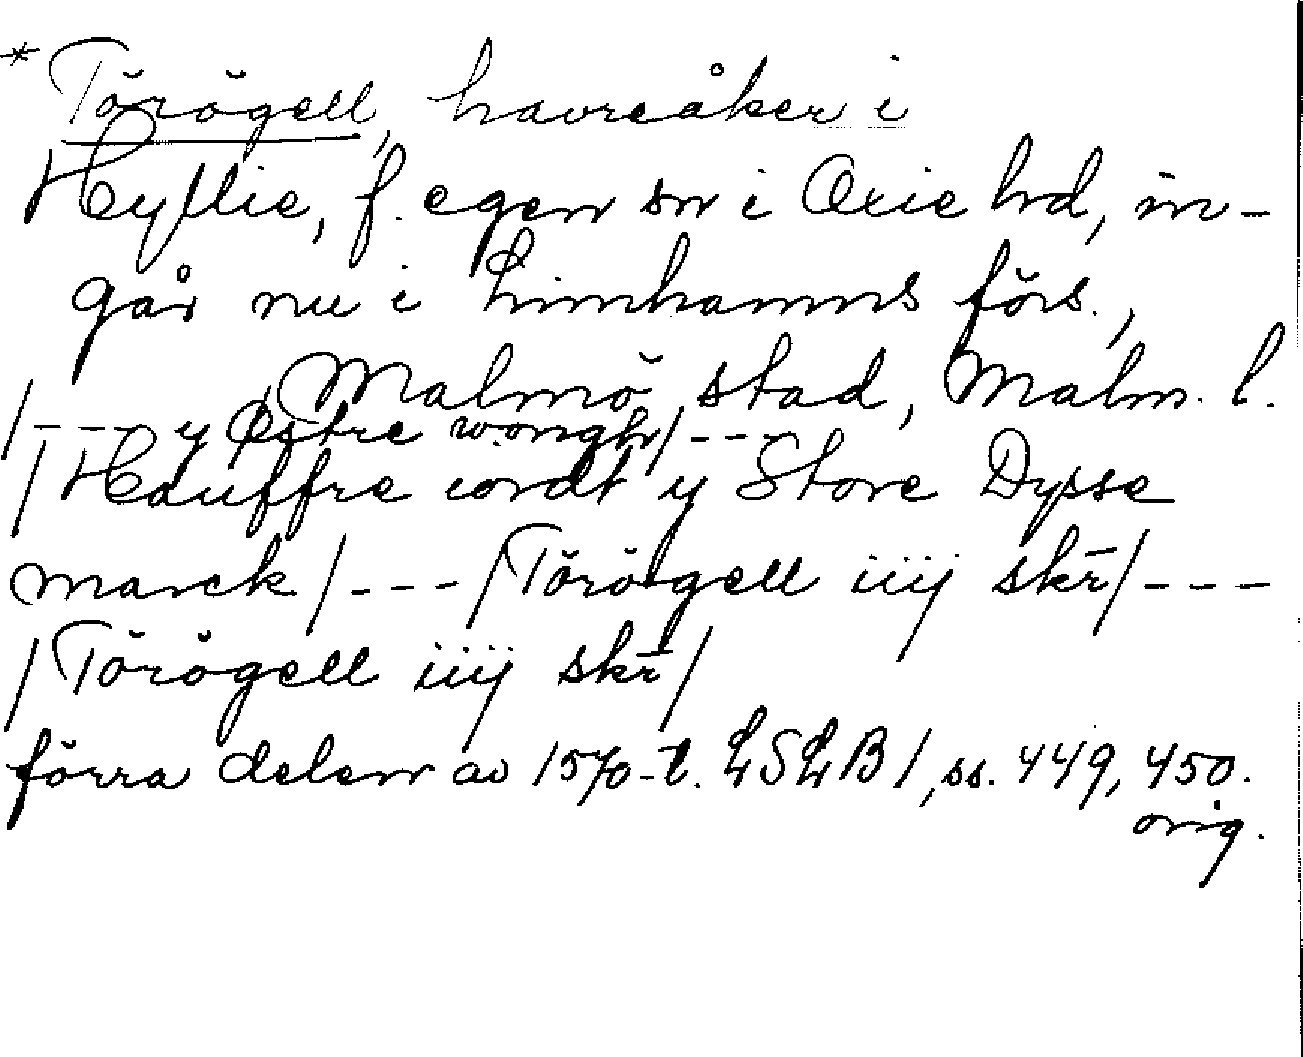 * Törögell, havreåker i
Hyllie, f. egen sn i Oxie hd, in-
går nu i Limhamns förs.,
Malmö stad, Malm. l.
/---- y Østre wongh/---
/Hauffre iordt y Store Dysse
marck/---/Törögell iiij skr̄/---
/Törögell iiij skr̄/
förra delen av 1570-t. LSLB 1, ss. 449, 450.
orig.